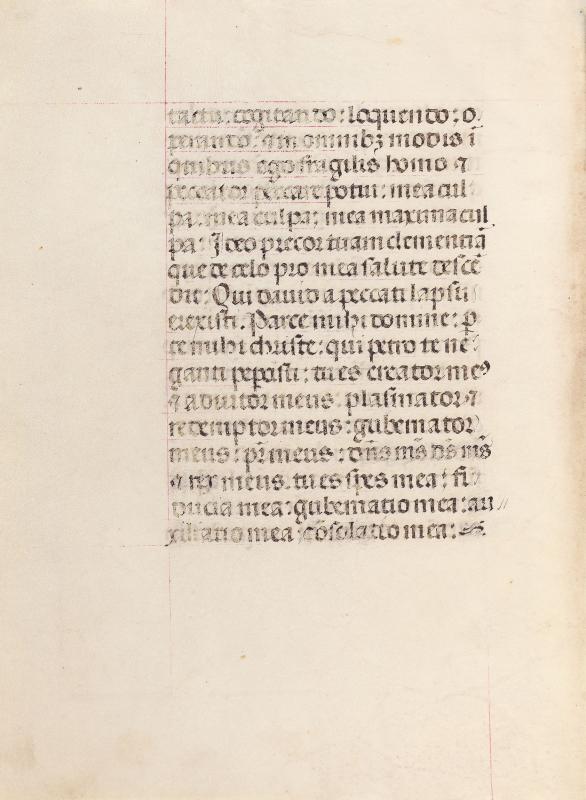 tactu: cogitando: loquendo: o
perando: et in omnibꝫ modis ī
quibus ego fragilis homo ⁊
peccator peccare potui: mea cul
pa: mea culpa: mea maxima cul
pa: Ideo precor tuam clementiā
que de celo pro mea salute descē
dit: Qui dauid a peccati lapsu
erexisti. Parce mihi domine: p̄
ce mihi christe: qui petro te ne
ganti pepcisti: tu es creator meꝰ
⁊ adiutor meus: plasmator ⁊
redemptor meus: gubernator
meus: pr̄ meus: dn̄s ms̄ ds̄ ms̄
⁊ rex meus. tu es spes mea: fi
ducia mea: gubernatio mea: au
xiliatio mea: cōsolatio mea: